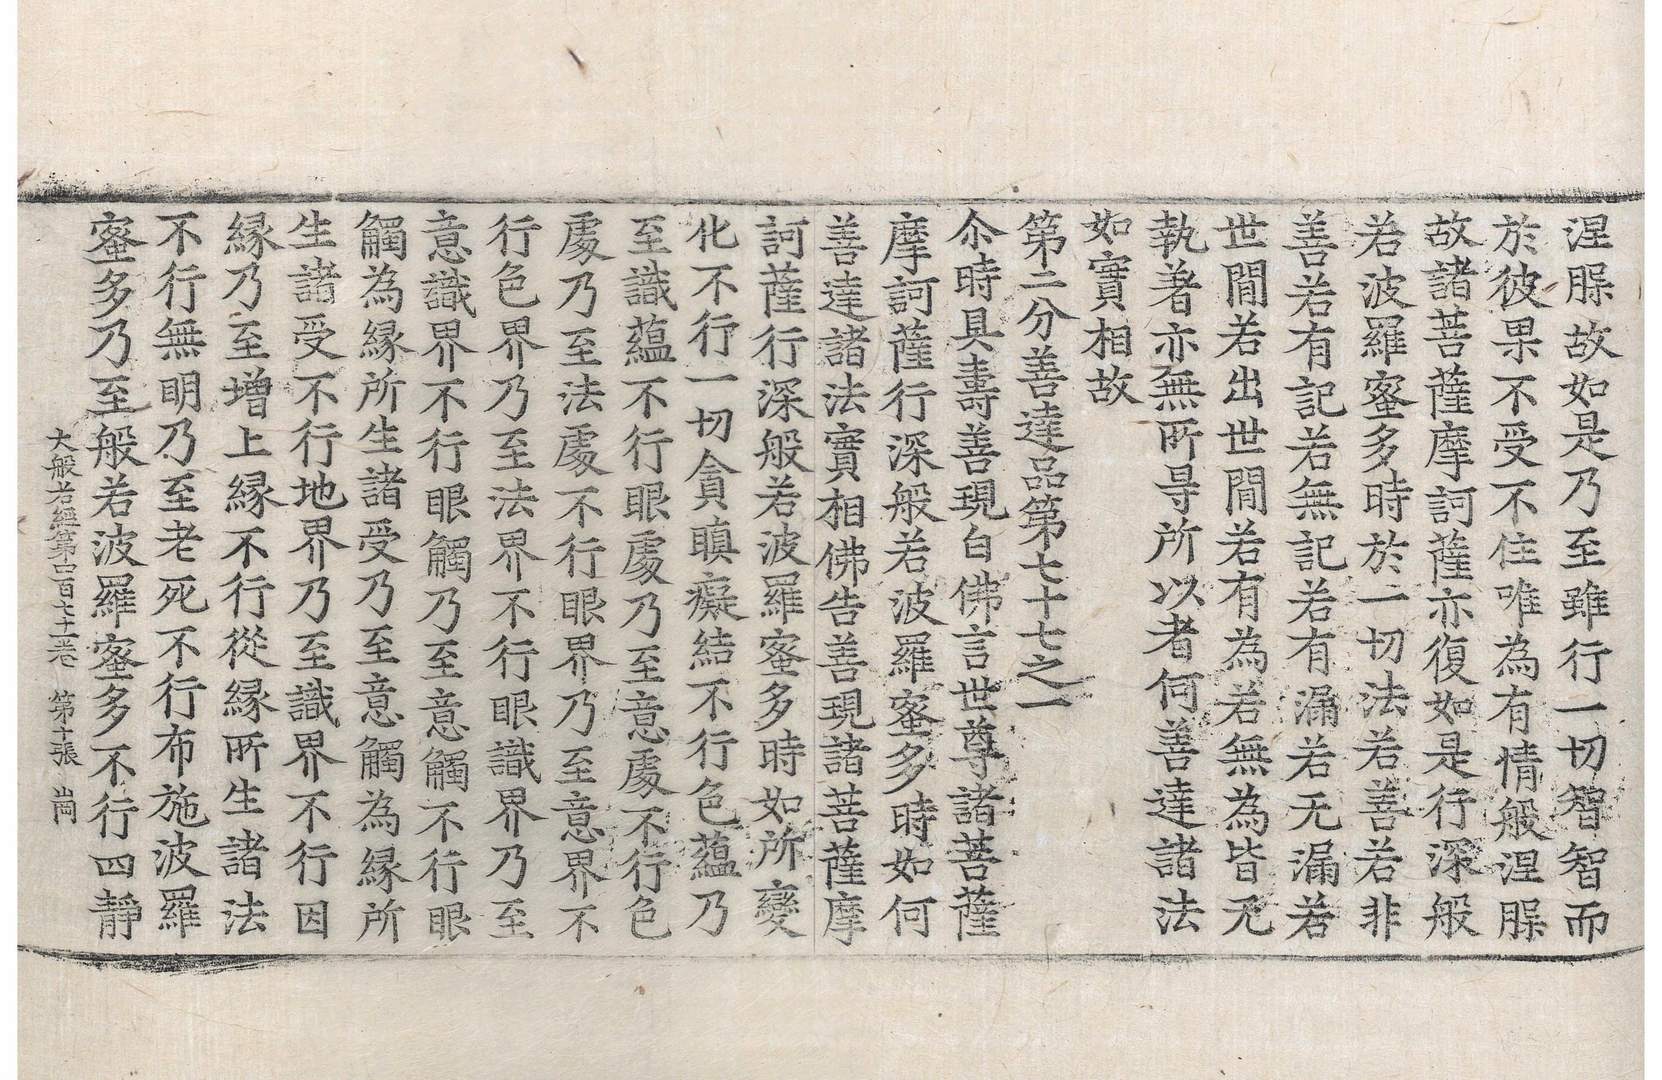 涅槃故如是乃至雖行一切智智而
於彼果不受不住唯為有情般涅槃
故諸菩薩摩訶薩亦復如是行深般
若波羅蜜多時於一切法若善若非
善若有記若無記若有漏若无漏若
世間若出世間若有為若無為皆无
執著亦無所㝵所以者何善達諸法
如實相故
第二分善達品第七十七之一
尒時具壽善現白佛言世尊諸菩薩
摩訶薩行深般若波羅蜜多時如何
善達諸法實相佛告善現諸菩薩摩
訶薩行深般若波羅蜜多時如所變
化不行一切貪瞋癡結不行色蘊乃
至識蘊不行眼處乃至意處不行色
處乃至法處不行眼界乃至意界不
行色界乃至法界不行眼識界乃至
意識界不行眼觸乃至意觸不行眼
觸為緣所生諸受乃至意觸為緣所
生諸受不行地界乃至識界不行因
緣乃至增上緣不行從緣所生諸法
不行無明乃至老死不行布施波羅
蜜多乃至般若波羅蜜多不行四靜
大般若經第四百七十二卷 第十張 崗